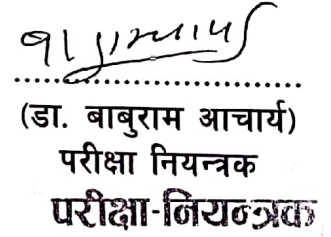 (डा. बाबुराम आचार्य)
परीक्षा नियन्त्रक
परीक्षा-नियन्त्रक